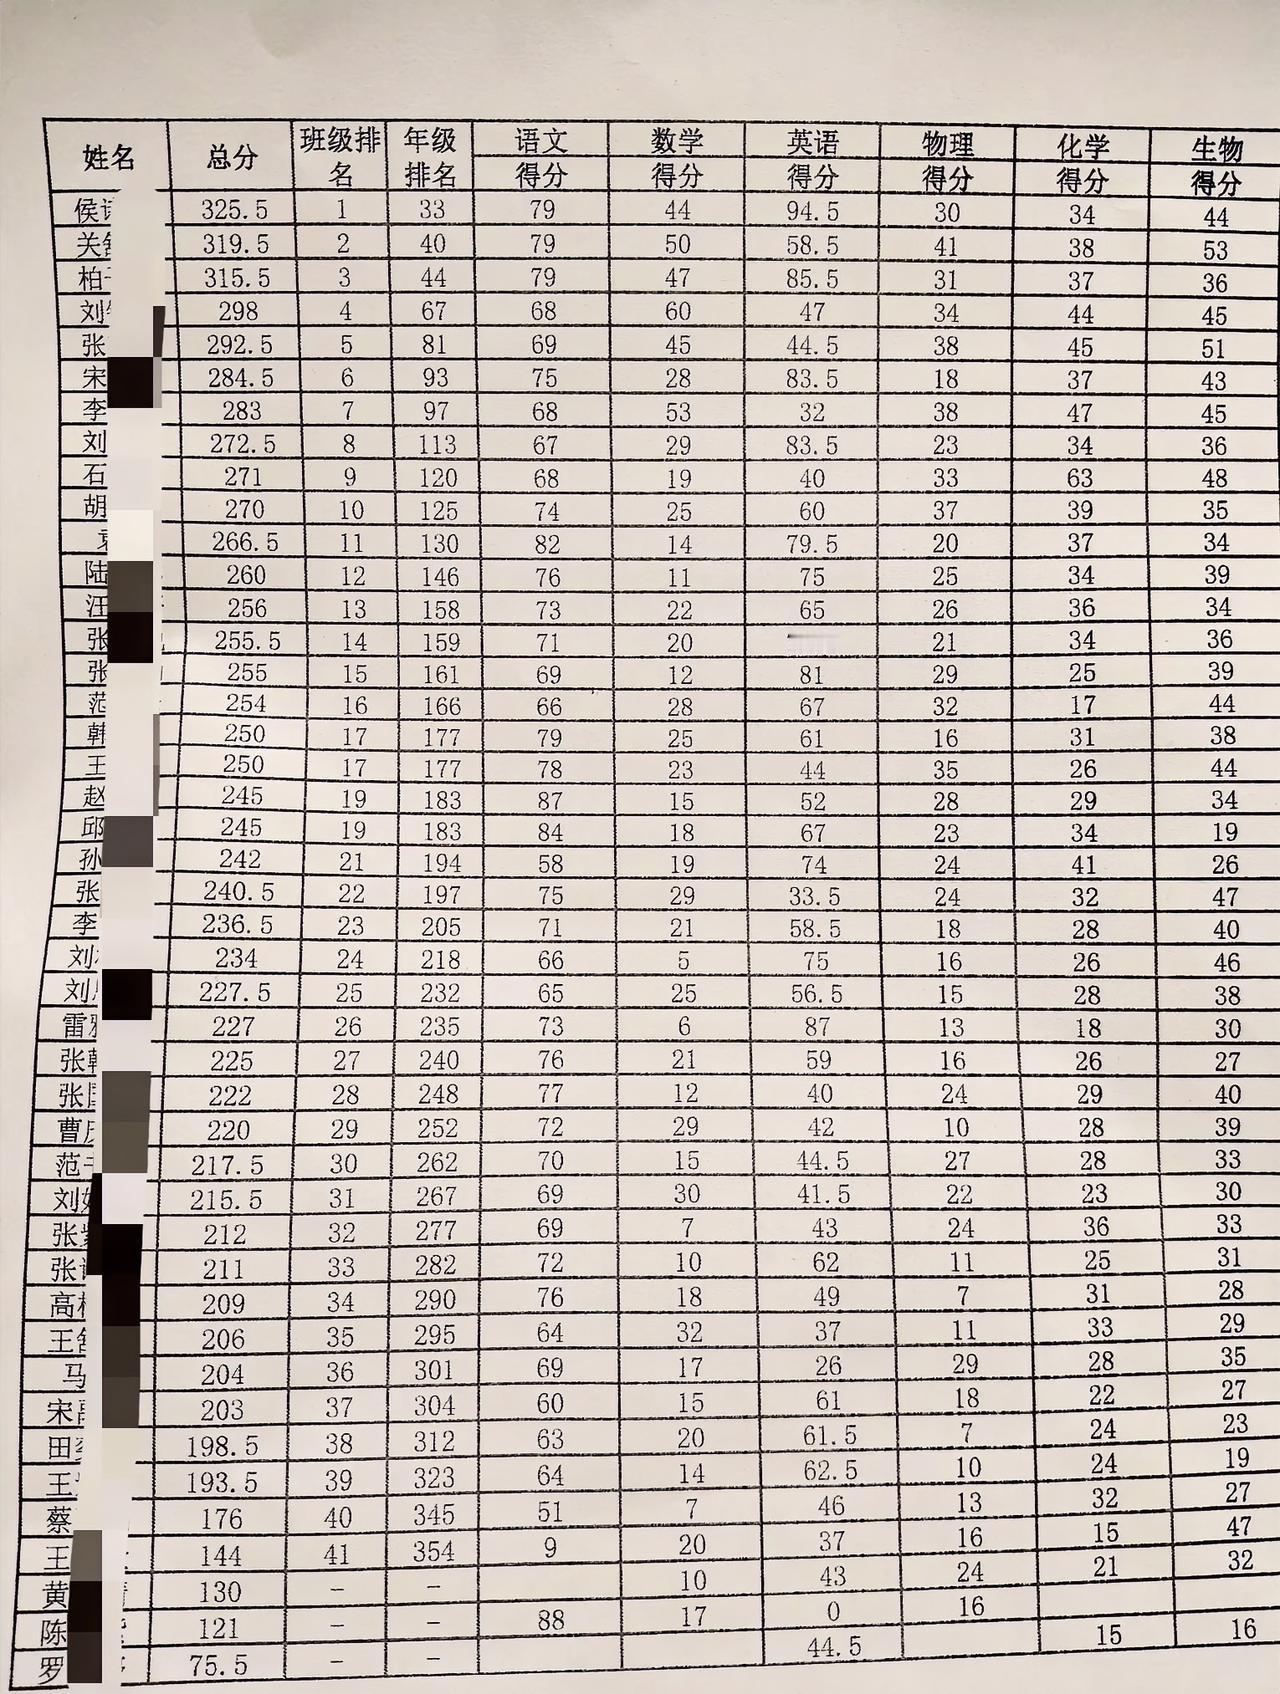 姓名 总分 班级排名 年级排名 语文 数学 英语 物理 化学 生物
得分 得分 得分 得分 得分 得分
侯 325.5 1 33 79 44 94.5 30 34 44
关 319.5 2 40 79 50 58.5 41 38 53
柏 315.5 3 44 79 47 85.5 31 37 36
刘 298 4 67 68 60 47 34 44 45
张 292.5 5 81 69 45 44.5 38 45 51
宋 284.5 6 93 75 28 83.5 18 37 43
李 283 7 97 68 53 32 38 47 45
刘 272.5 8 113 67 29 83.5 23 34 36
石 271 9 120 68 19 40 33 63 48
胡 270 10 125 74 25 60 37 39 35
266.5 11 130 82 14 79.5 20 37 34
陆 260 12 146 76 11 75 25 34 39
汪 256 13 158 73 22 65 26 36 34
张 255.5 14 159 71 20 21 34 36
张 255 15 161 69 12 81 29 25 39
范 254 16 166 66 28 67 32 17 44
韩 250 17 177 79 25 61 16 31 38
王 250 17 177 78 23 44 35 26 44
赵 245 19 183 87 15 52 28 29 34
邱 245 19 183 84 18 67 23 34 19
孙 242 21 194 58 19 74 24 41 26
张 240.5 22 197 75 29 33.5 24 32 47
李 236.5 23 205 71 21 58.5 18 28 40
刘 234 24 218 66 5 75 16 26 46
刘 227.5 25 232 65 25 56.5 15 28 38
雷 227 26 235 73 6 87 13 18 30
张 225 27 240 76 21 59 16 26 27
张 222 28 248 77 12 40 24 29 40
曹 220 29 252 72 29 42 10 28 39
范 217.5 30 262 70 15 44.5 27 28 33
刘 215.5 31 267 69 30 41.5 22 23 30
张 212 32 277 69 7 43 24 36 33
张 211 33 282 72 10 62 11 25 31
高 209 34 290 76 18 49 7 31 28
王 206 35 295 64 32 37 11 33 29
马 204 36 301 69 17 26 29 28 35
宋 203 37 304 60 15 61 18 22 27
田 198.5 38 312 63 20 61.5 7 24 23
王 193.5 39 323 64 14 62.5 10 24 19
蔡 176 40 345 51 7 46 13 32 27
王 144 41 354 9 20 37 16 15 47
黄 130 - - 10 43 24 21 32
陈 121 - - 88 17 0 16
罗 75.5 - - 44.5 15 16